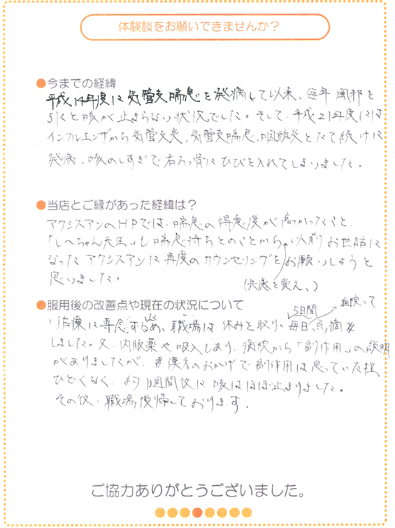 体験談をお願いできませんか?
●今までの経緯
平成14年度に気管支喘息を発病して以来、毎年風邪を
引くと咳が止まらない状況でした。そして、平成21年度には
インフルエンザから気管支炎、気管支喘息、咽頭炎とたて続けに
発病、咳のしすぎで右ろっ骨にひびを入れてしまいました。
●当店とご縁があった経緯は?
アクシスアンのHPでは、喘息の得意度が高かったことと、
「しへちゃん先生」も喘息持ちとのことから、以前お世話に
なったアクシスアンに再度のカウンセリングをお願いしようと
思いました。
(失意を覚え、)
●服用後の改善点や現在の状況について
治療に専念するため、職場は休みを取り、毎日点滴を
5日間
しました。又、内服薬や吸入もあり、病院から「副作用」の説明
がありましたが、漢方のおかげで副作用は思っていた程
ひどくなく、約1週間後に咳はほぼ止まりました。
その後、職場復帰しております。
ご協力ありがとうございました。